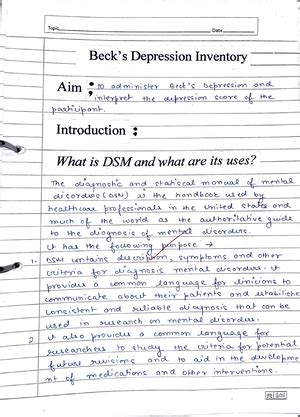 Topic
Date
Beck's Depression Inventory
Aim : To administer Beck's Depression and
interpret the depression score of the
participant.
Introduction :
What is DSM and what are its uses?
The diagnostic and statiscal manual of mental
disorders (DSM) is the handbook used by
healthcare professionals in the United States and
much of the world as the authoritative guide
to the diagnosis of mental disorders.
it has the following purpose →
1. DSM contains description, symptoms and other
criteria for diagnosis mental disorders. it
provides a common language for clinicians to
communicate about their patients and establishes
consistent and reliable diagnosis that can be
used in research on mental disorders.
2. it also provides a common language for
researchers to study the criteria for potential
future revisions and to aid in the developme
nt of medications and other interventions.